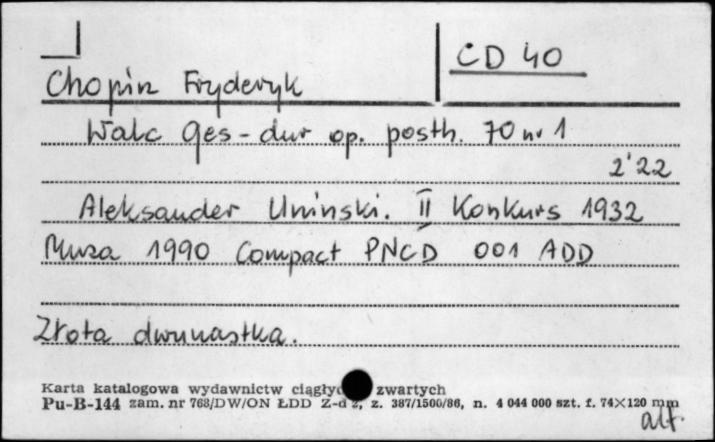 CD 40
Chopin Fryderyk
Walc Ges-dur op. posth. 70 nr 1
2'22
Aleksander Uninski. II Konkurs 1932
Muza 1990 Compact PNCD 001 ADD
Złota dwunastka.
Karta katalogowa wydawnictw ciągłyc zwartych
Pu-B-144 zam. nr 768/DW/ON ŁDD Z-d z, z. 387/1500/86, n. 4 044 000 szt. f. 74×120 mm
alt